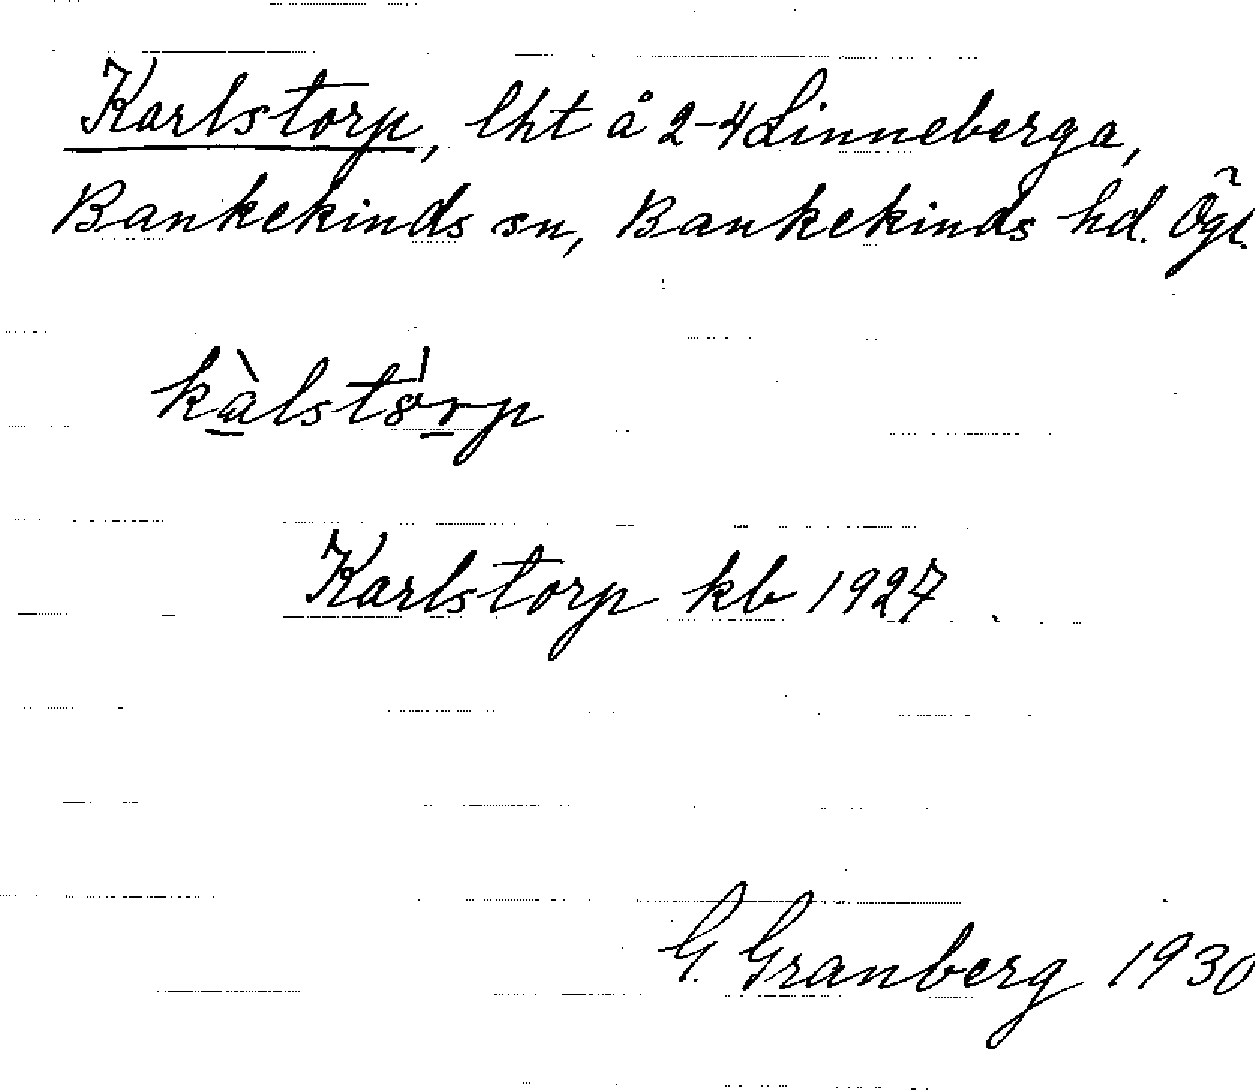 Karlstorp, lht å 2-4 Linneberga,
Bankekinds sn, Bankekinds hd. Ögl.
kàlstòrp
Karlstorp kb 1927
G. Granberg 1930